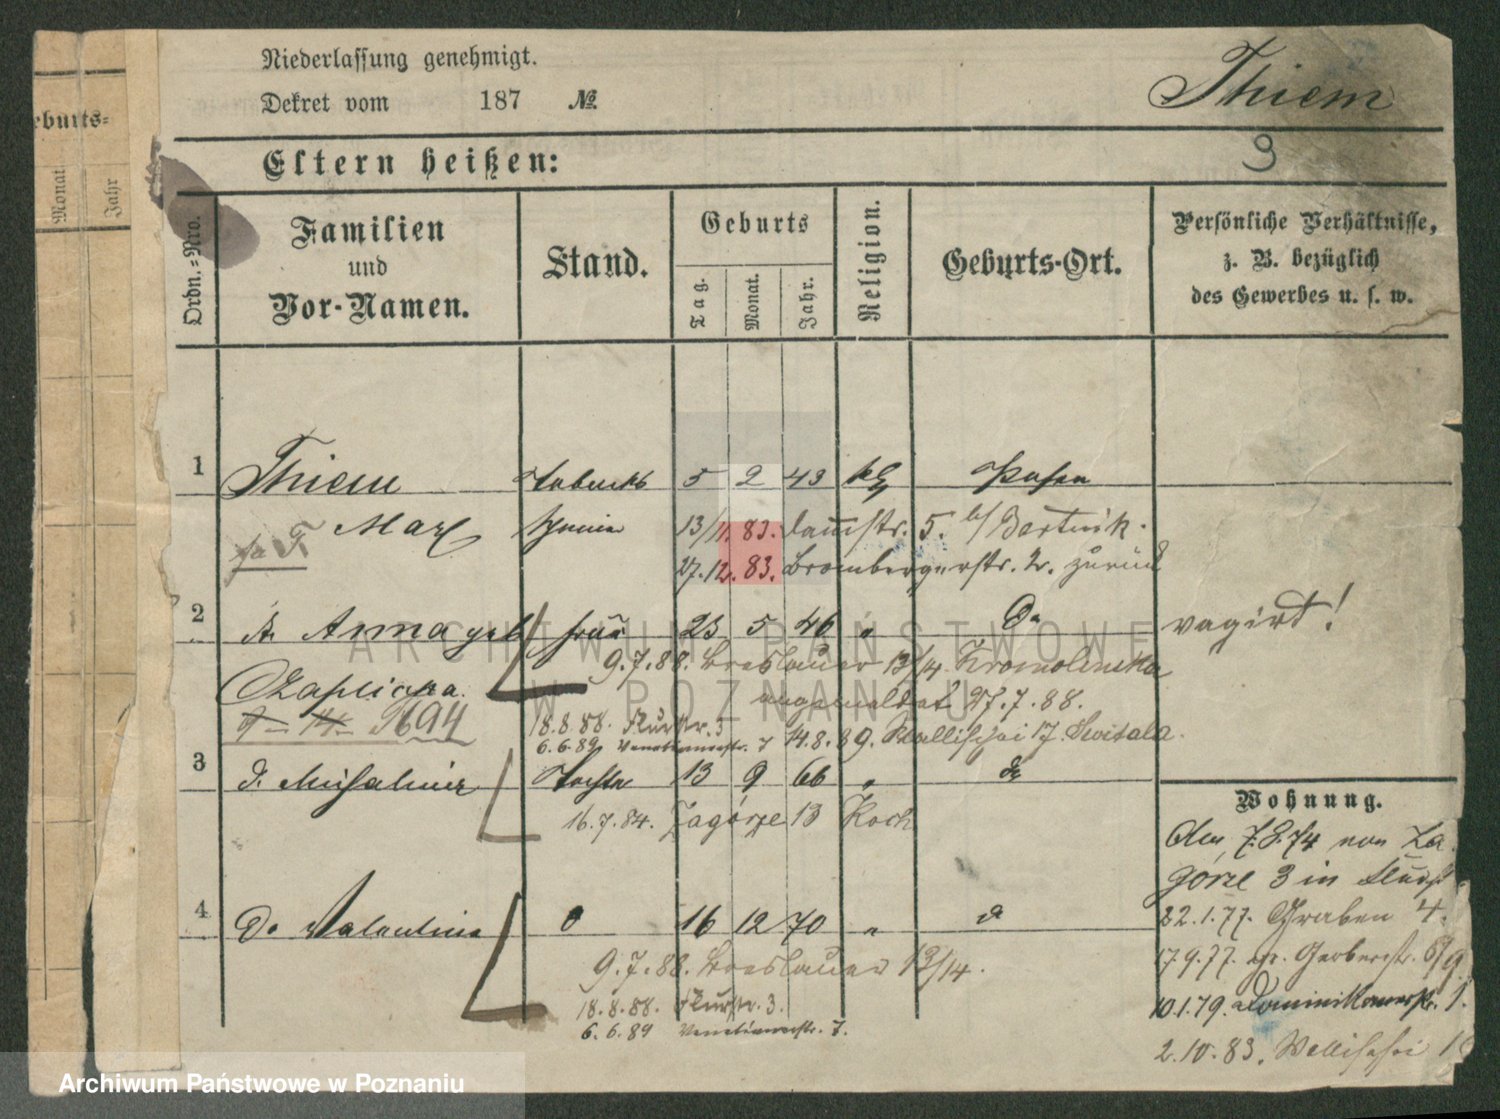 Niederlassung genehmigt.
Dekret vom 187 №
Thiem
9
Eltern heißen:
eburts=
Monat
Jahr
Ordn.=Nro.
Familien
und
Vor-Namen.
Stand.
Geburts
Tag.
Monat.
Jahr.
Religion.
Geburts-Ort.
Persönliche Verhältnisse,
z. B. bezüglich
des Gewerbes u. s. w.
1 Thiem Tabacks 5 2 43 Posen
Max 13/11. 83. Dammstr. 5. b/ Bartnik.
27.12. 83. Brombergerstr. 2. zurück
2 Anna geb Frau 23 5 46 " Do
vagirt!
9.7.88. Breslauer 13/14 Kromolinska
Czaplicka. angemeldet 27.7.88.
S694
18.8.88. Flurstr. 3
6.6.89 Venetianerstr. 7 14.8.89. Wallischei 17 Switala.
3 d. Michalina Tochter 13 9 66 " do
16.7.84. Zagórze 13 Koch
Wohnung.
Am 7.8.74 von Za
górze 3 in
4 Do Valentina 16 12 70 "
22.1.77. Graben 4.
9.7.88. Breslauer 13/14.
17.9.77. Gr. Gerberstr. 6/9
18.8.88. Flurstr. 3.
10.1.79. Dominikanerstr. 1.
6.6.89 Venetianerstr. 7.
2.10.83. Wallischei 1
ARCHIWUM PAŃSTWOWE
W POZNANIU
Archiwum Państwowe w Poznaniu